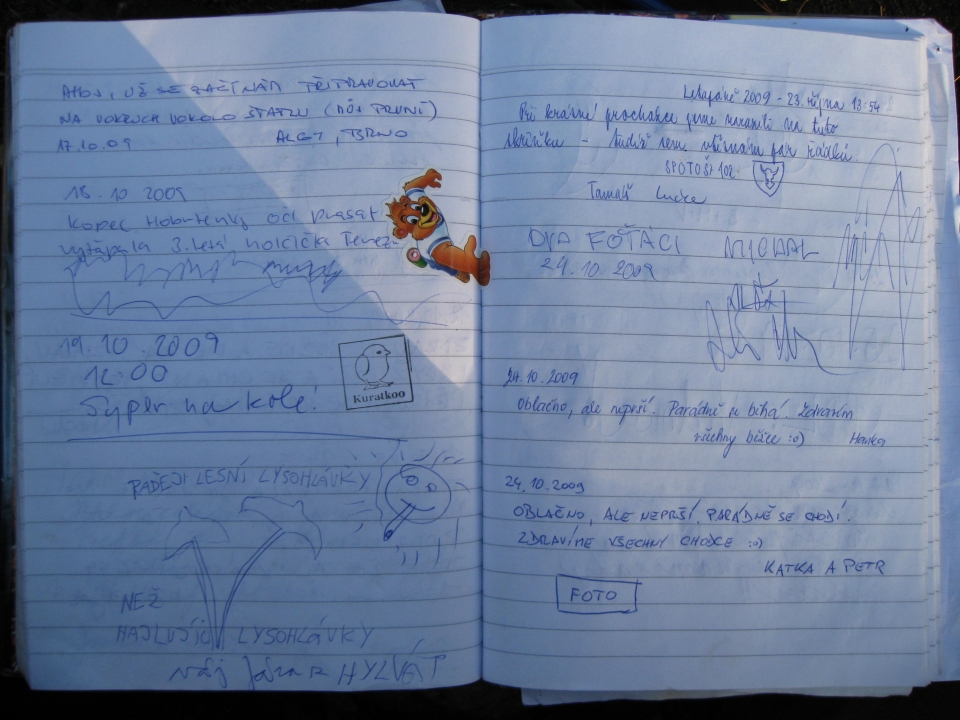 AHOJ, UŽ SE ZAČÍNÁM
NA VOKOLO STÁTKU (MŮJ PRVNÍ)
17.10.09 ALGI, BRNO
18.10 2009
Kopec Hobrtenky od prasat
vyťapala 3.letá holčička Tereza
19.10.2009
12:00
Syper na kole!
Kuratkoo
RADĚJI LESNÍ LYSOHLÁVKY
NEŽ
HAJLUJÍCÍ LYSOHLÁVKY
Náš Jára HYLVÁT
Listopáně 2009 - 23. října 13:54
Při krásné procházce jsme narazili na tuto
skříňku -
SPOTOŠI 102
Tomáš Lucka
DVA FOŤÁCI MICHAL
24.10 2009
24.10.2009
Oblačno, ale neprší. Parádně se běhá. Zdravím
všechny běžce :o) Hanka
24.10.2009
OBLAČNO, ALE NEPRŠÍ. PARÁDNĚ SE CHODÍ.
ZDRAVÍME VŠECHNY CHODCE :o)
KATKA A PETR
FOTO